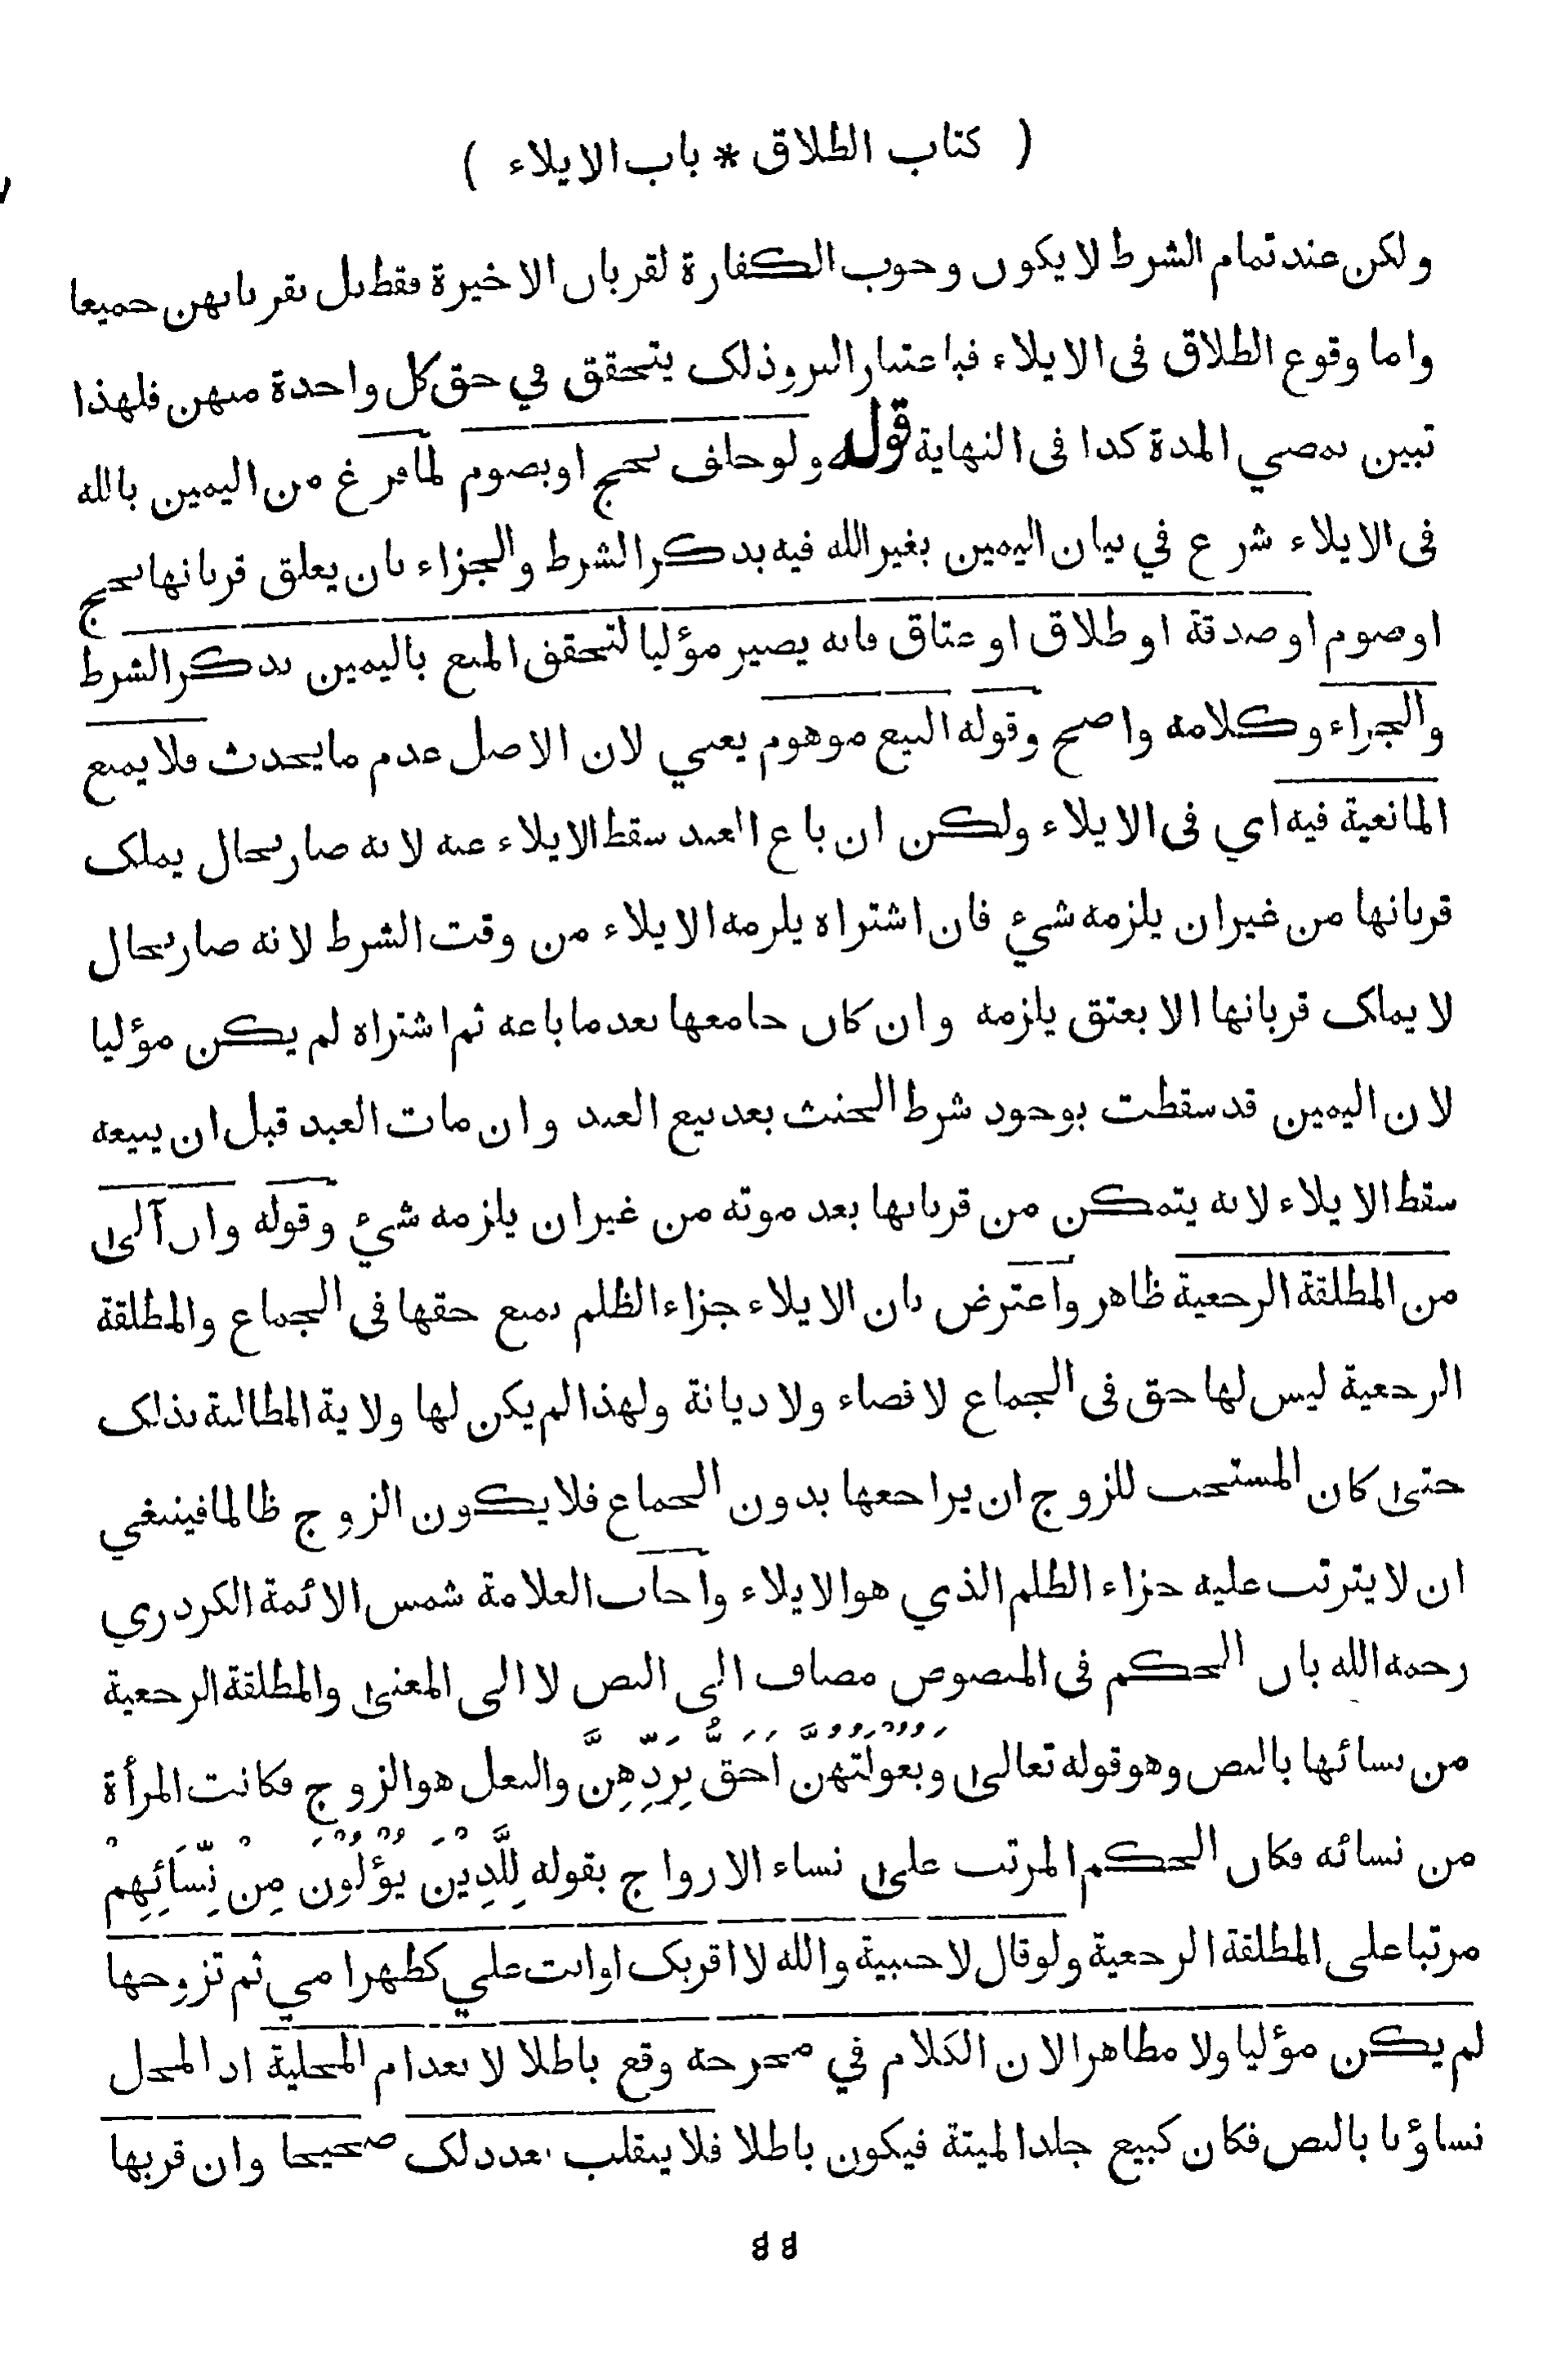 ( كتاب الطلاق * باب الايلاء )
ولكن عند تمام الشرط لا يكون وجوب الكفارة لقربان الاخيرة فقط بل بقربانهن جميعا
واما وقوع الطلاق فى الايلاء فباعتبار البر وذلك يتحقق في حق كل واحدة منهن فلهذا
تبين بمضي المدة كذا فى النهاية قوله ولو حلف بحج او بصوم لما فرغ من اليمين بالله
فى الايلاء شرع في بيان اليمين بغير الله فيه بذكر الشرط والجزاء بان يعلق قربانها بحج
او صوم او صدقة او طلاق او عتاق فانه يصير مؤليا لتحقق المنع باليمين بذكر الشرط
والجزاء وكلامه واضح وقوله البيع موهوم يعني لان الاصل عدم ما يحدث فلا يمنع
المانعية فيه اي فى الايلاء ولكن ان باع العبد سقط الايلاء عنه لانه صار بحال يملك
قربانها من غير ان يلزمه شيء فان اشتراه يلزمه الايلاء من وقت الشرط لانه صار بحال
لا يملك قربانها الا بعتق يلزمه وان كان جامعها بعد ما باعه ثم اشتراه لم يكن مؤليا
لان اليمين قد سقطت بوجود شرط الحنث بعد بيع العبد وان مات العبد قبل ان يبيعه
سقط الايلاء لانه يتمكن من قربانها بعد موته من غير ان يلزمه شيء وقوله وان آلى
من المطلقة الرجعية ظاهر واعترض بان الايلاء جزاء الظلم بمنع حقها فى الجماع والمطلقة
الرجعية ليس لها حق فى الجماع لا قضاء ولا ديانة ولهذا لم يكن لها ولاية المطالبة بذلك
حتى كان المستحب للزوج ان يراجعها بدون الجماع فلا يكون الزوج ظالما فينبغي
ان لا يترتب عليه جزاء الظلم الذي هو الايلاء واجاب العلامة شمس الائمة الكردري
رحمه الله بان الحكم فى المنصوص مضاف الى النص لا الى المعنى والمطلقة الرجعية
من نسائها بالنص وهو قوله تعالى وَبُعُولَتُهُنَّ اَحَقُّ بِرَدِّهِنَّ والبعل هو الزوج فكانت المرأة
من نسائه فكان الحكم المرتب على نساء الازواج بقوله لِلَّذِيْنَ يُؤْلُوْنَ مِنْ نِّسَائِهِمْ
مرتبا على المطلقة الرجعية ولو قال لاجنبية والله لا اقربك او انت علي كظهر امي ثم تزوجها
لم يكن مؤليا ولا مظاهرا لان الكلام في مخرجه وقع باطلا لانعدام المحلية اذ المحل
نساؤنا بالنص فكان كبيع جلد الميتة فيكون باطلا فلا ينقلب بعد ذلك صحيحا وان قربها